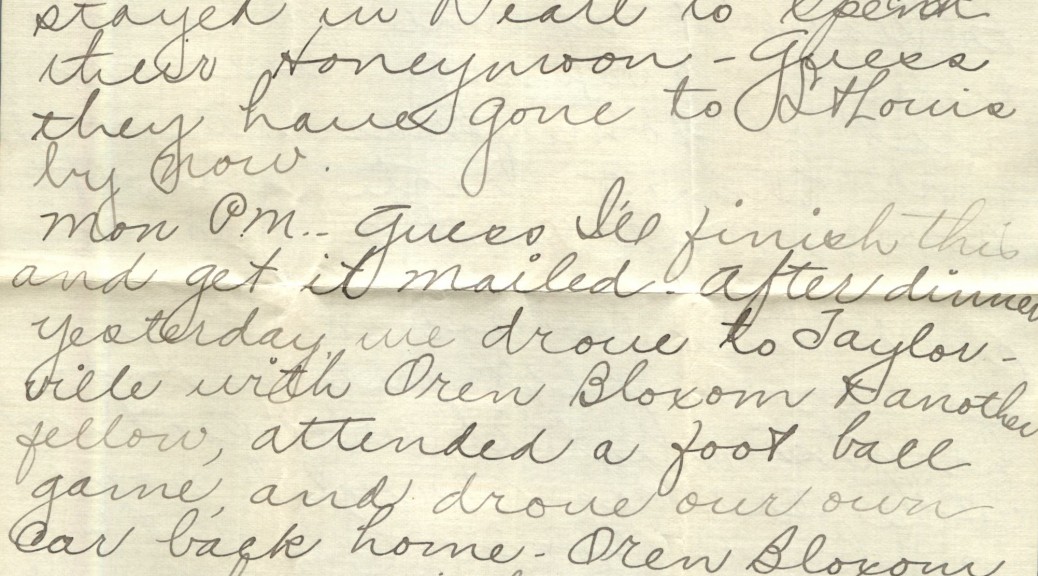 stayed in Neall to spend
their Honeymoon - Guess
they have gone to St Louis
by now.
Mon P.M. - Guess I'll finish this
and get it mailed. After dinner
yesterday, we drove to Taylor-
ville with Oren Bloxom & another
fellow, attended a foot ball
game, and drove our own
car back home - Oren Bloxom